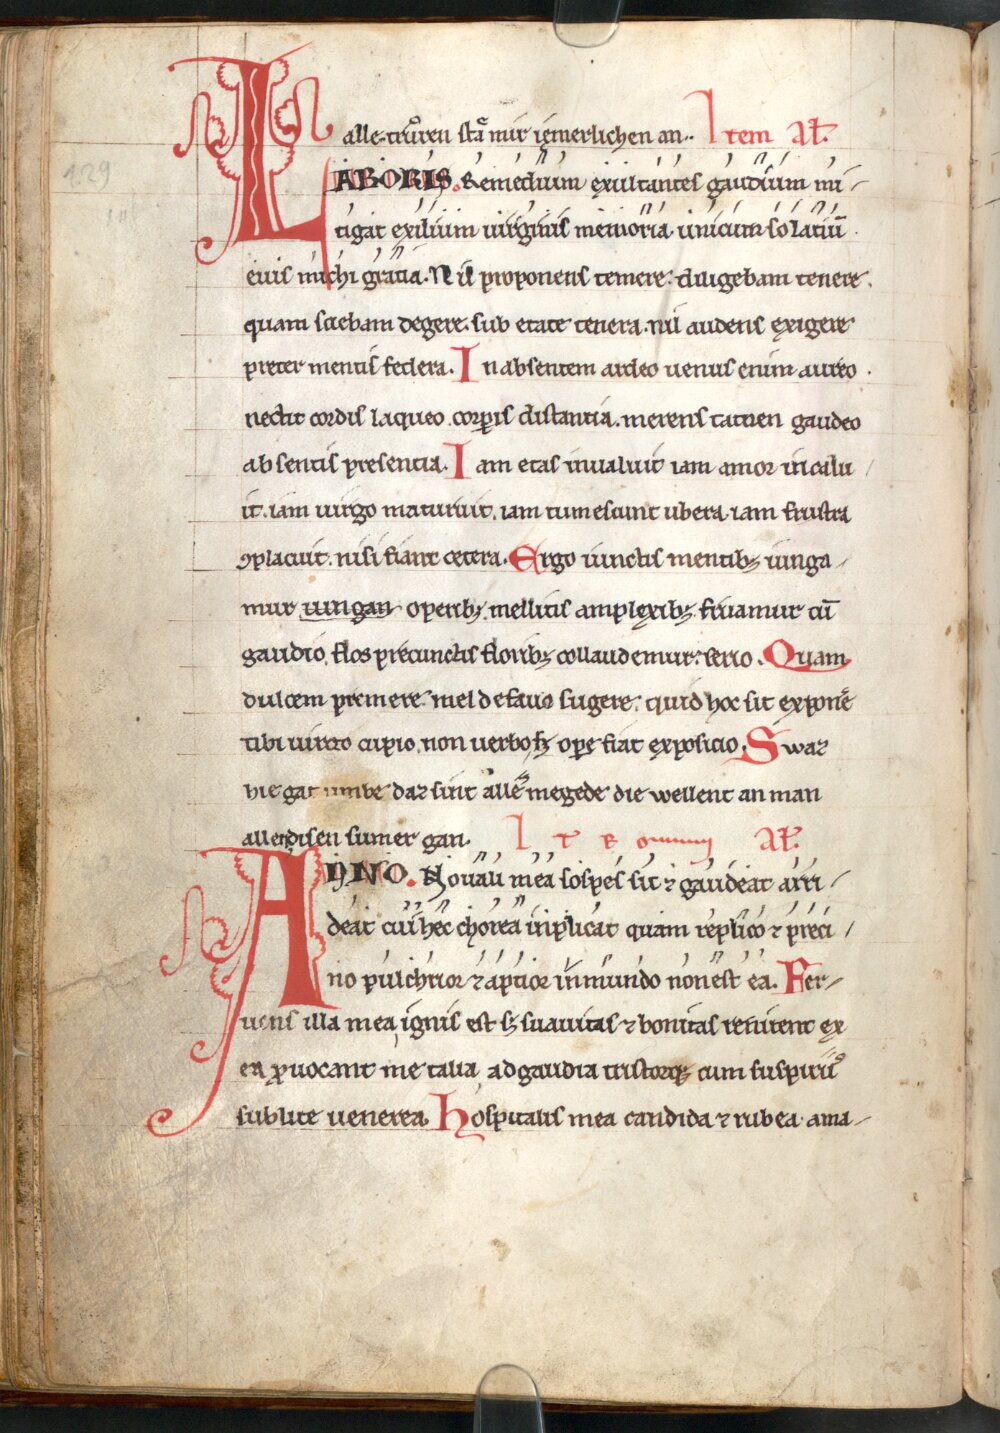 alle truͦren sta mir iemerlichen an. Item Al̄.
LABORIS. Remedium exultantes gaudium mi
tigat exilium uirginis memoria unicum solatiū
euis michi gratia. Nil proponens temere. diligebam tenere.
quam sciebam degere. sub etate tenera. nil audens exigere
preter mentis federa. In absentem ardeo uenus enim aureo.
nectit cordis laqueo. corꝑis distantia. merens tamen gaudeo
absentis presentia. Iam etas inualuit iam amor incalu
it. iam uirgo maturuit. iam tumescunt ubera. iam frustra
ꝯplacuit. nisi fiant cetera. Ergo iunctis mentibꝫ iunga
mur iungan operibꝫ. mellitis amplexibꝫ fruamur cū
gaudio. flos precunctis floribꝫ collaudemur. serio. Quam
dulcem premere. mel de fauo sugere. quid hoc sit exponē
tibi uirgo cupio. non uerbo sꝫ oꝑe fiat exposicio. Swaz
hie gat umbe daz sint alle megede die wellent an man
allen disen sumer gan. I T R Al̄.
ANNO. Nouali mea sospes sit ⁊ gaudeat arri
deat cui hec chorea inplicat quam replico ⁊ preci
no pulchrior ⁊ aptior in mundo non est ea. Fer
uens illa mea ignis est sꝫ suauitas ⁊ bonitas renitent ex
ea ꝓuocant me talia ad gaudia tristorqꝫ cum suspiriis
sublite uenerea. Hospitalis mea candida ⁊ rubea ama
129